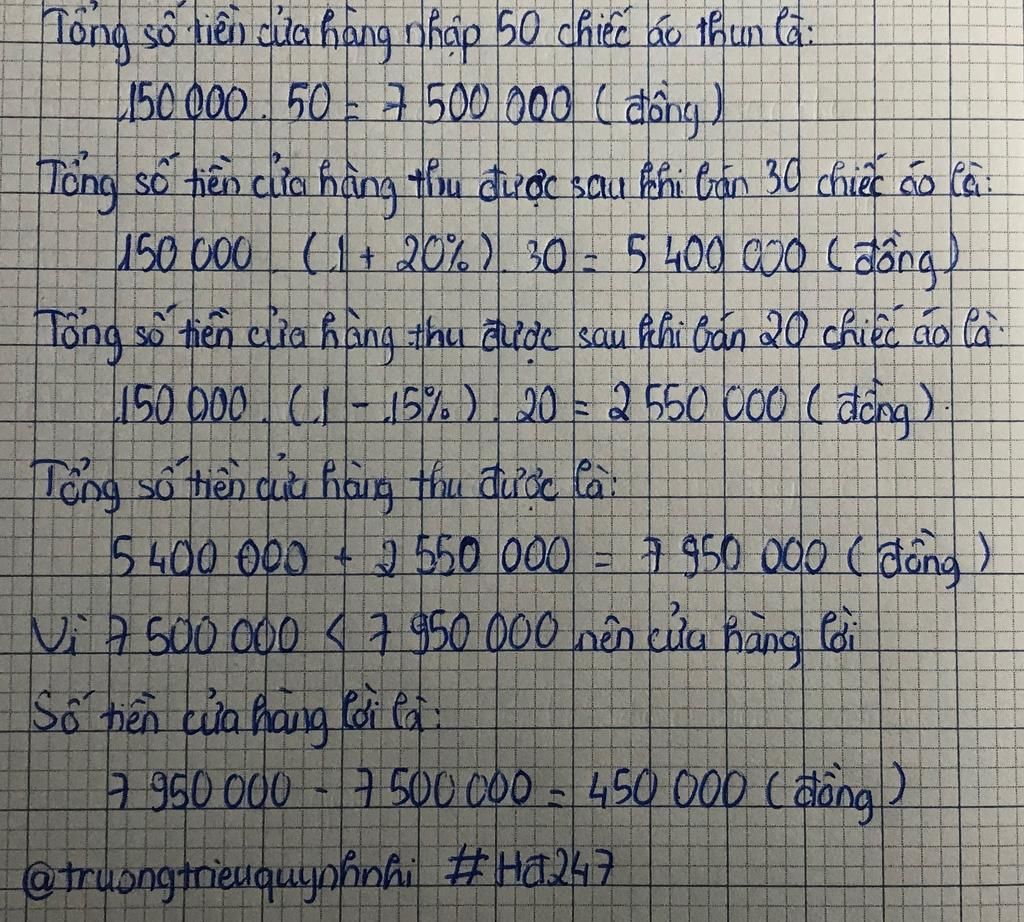 Tổng số tiền cửa hàng nhập 50 chiếc áo thun là:
150 000 . 50 = 7 500 000 ( đồng )
Tổng số tiền cửa hàng thu được sau khi bán 30 chiếc áo là:
150 000 . ( 1 + 20% ) . 30 = 5 400 000 ( đồng )
Tổng số tiền cửa hàng thu được sau khi bán 20 chiếc áo là:
150 000 . ( 1 - 15% ) . 20 = 2 550 000 ( đồng )
Tổng số tiền cửa hàng thu được là:
5 400 000 + 2 550 000 = 7 950 000 ( đồng )
Vì 7 500 000 < 7 950 000 nên cửa hàng lời
Số tiền cửa hàng lời là:
7 950 000 - 7 500 000 = 450 000 ( đồng )
@truongtrieuquynhnhi #Hđ247